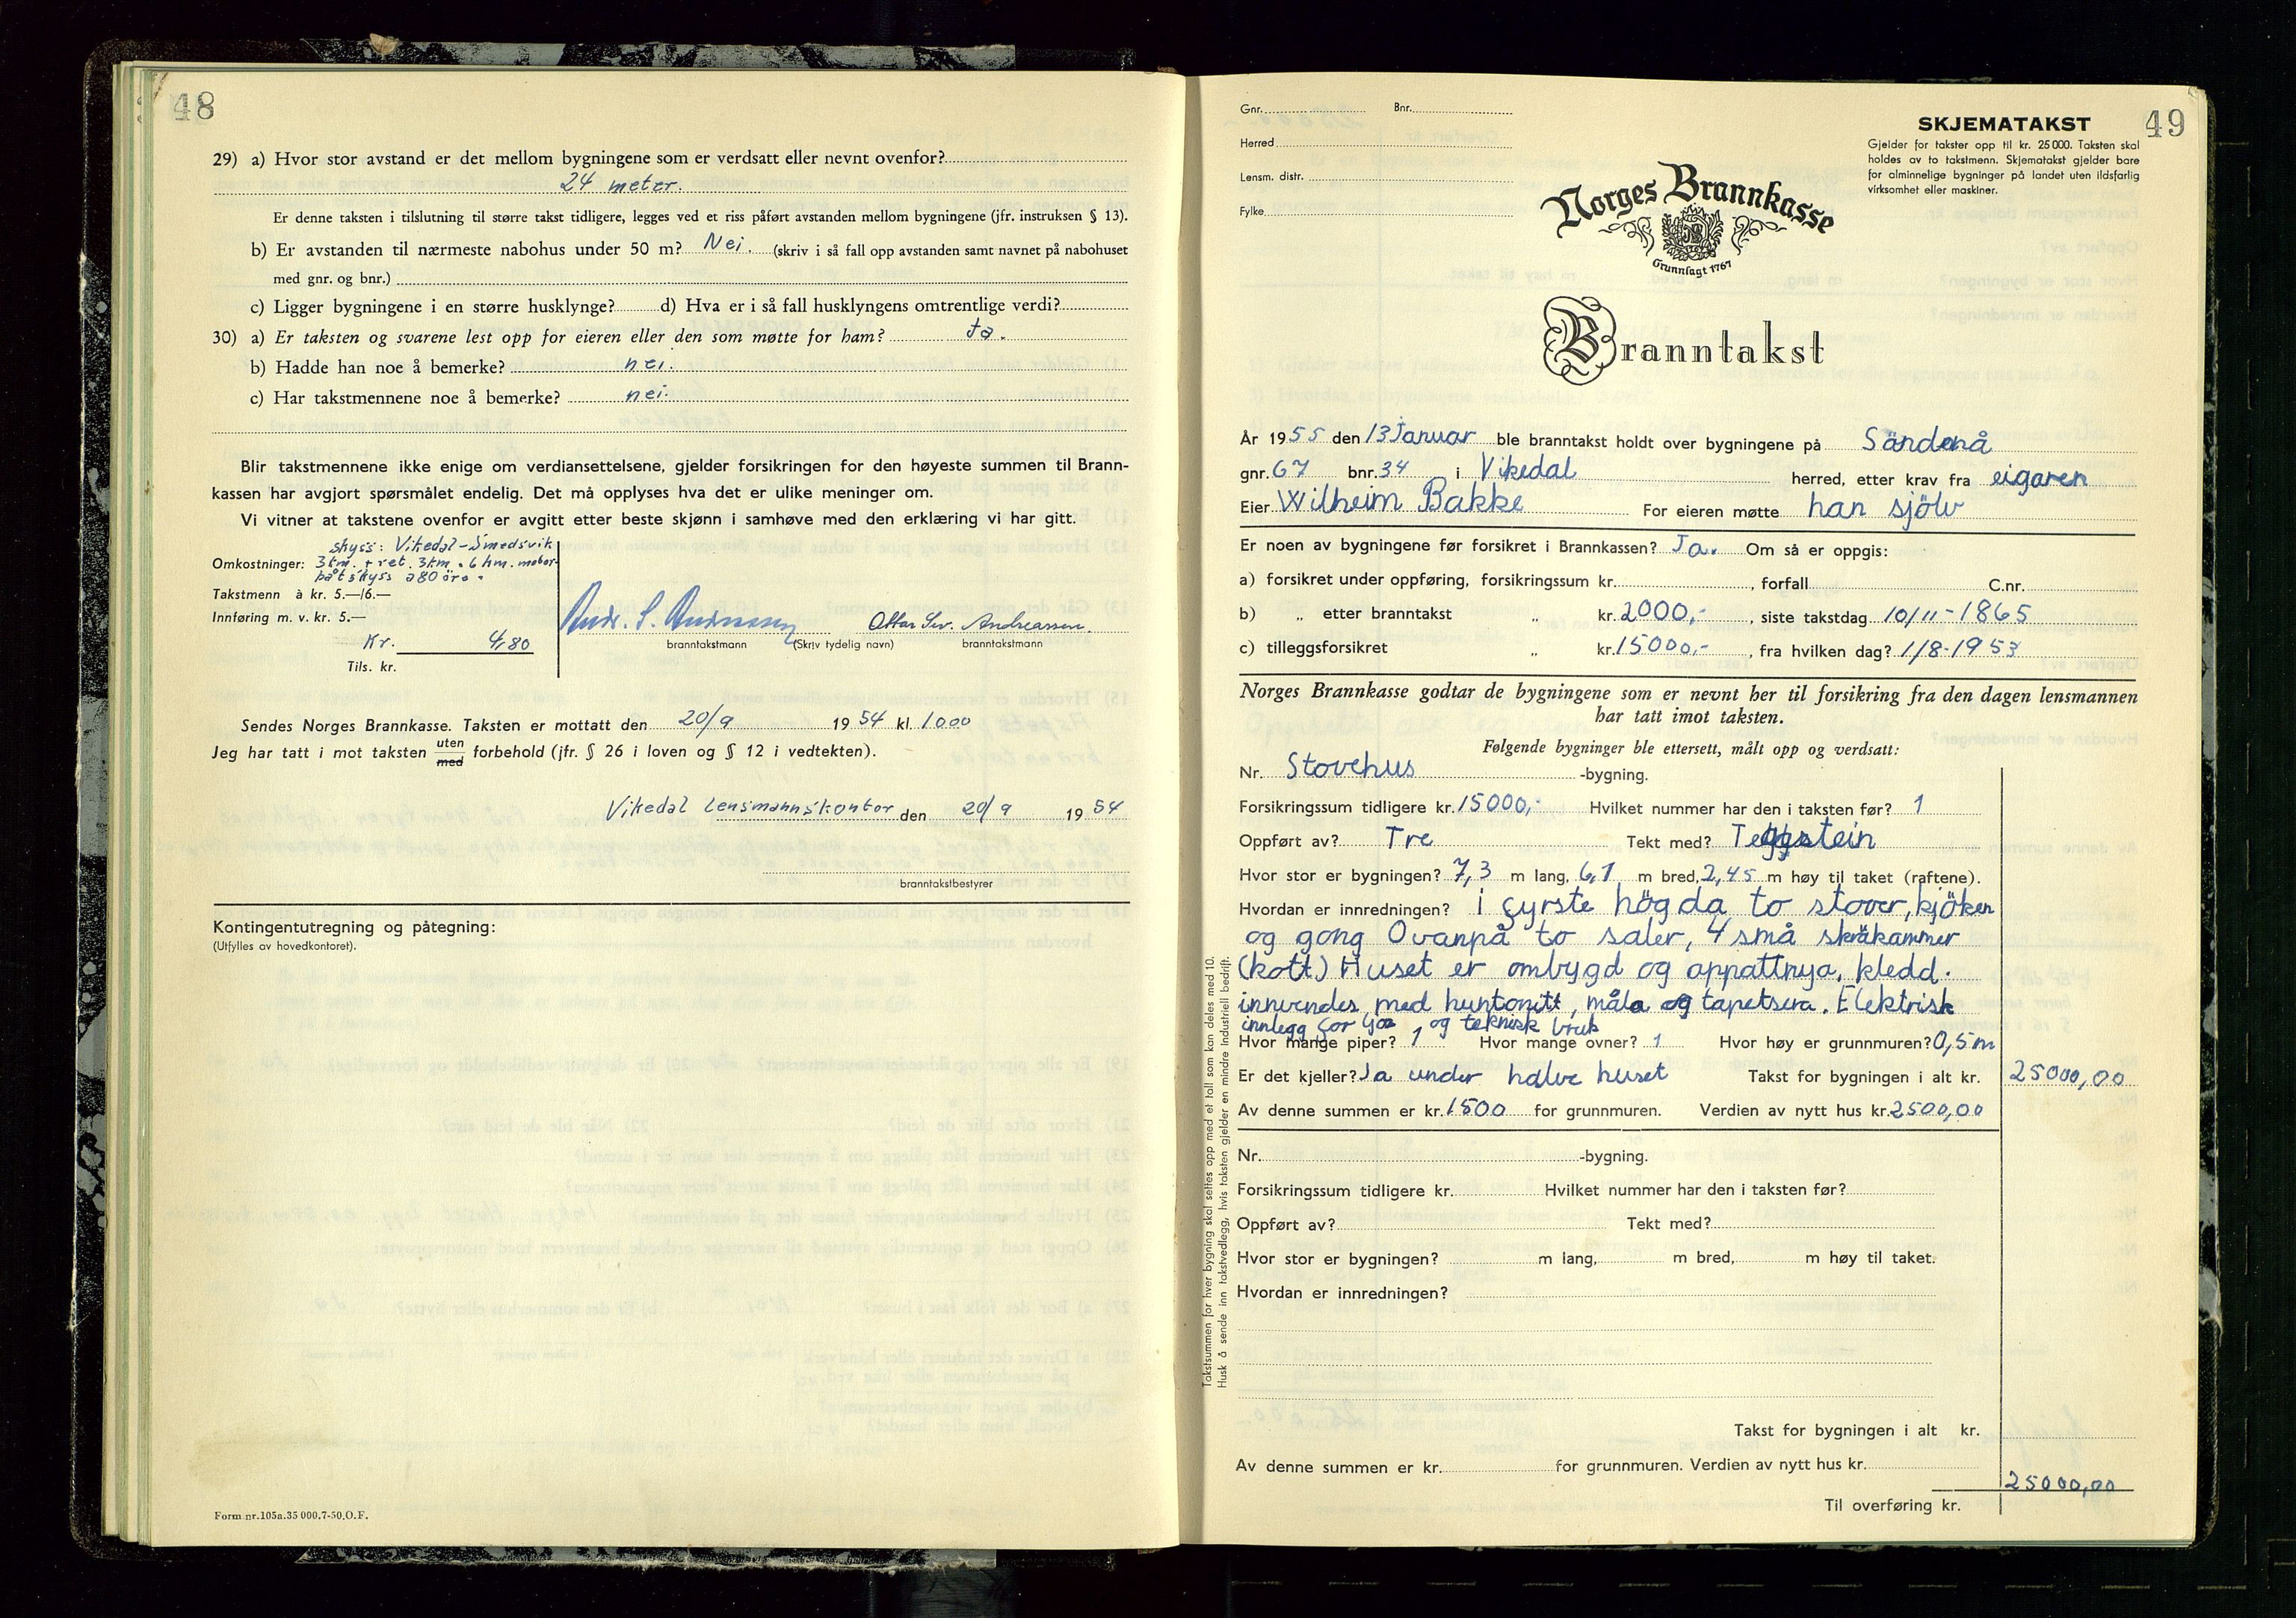 48
29) a) Hvor stor avstand er det mellom bygningene som er verdsatt eller nevnt ovenfor?
24 meter.
Er denne taksten i tilslutning til større takst tidligere, legges ved et riss påført avstanden mellom bygningene (jfr. instruksen § 13).
b) Er avstanden til nærmeste nabohus under 50 m? Nei. (skriv i så fall opp avstanden samt navnet på nabohuset
med gnr. og bnr.)
c) Ligger bygningene i en større husklynge? d) Hva er i så fall husklyngens omtrentlige verdi?
30) a) Er taksten og svarene lest opp for eieren eller den som møtte for ham? Ja.
b) Hadde han noe å bemerke? nei.
c) Har takstmennene noe å bemerke? nei.
Blir takstmennene ikke enige om verdiansettelsene, gjelder forsikringen for den høyeste summen til Brann-
kassen har avgjort spørsmålet endelig. Det må opplyses hva det er ulike meninger om.
Vi vitner at takstene ovenfor er avgitt etter beste skjønn i samhøve med den erklæring vi har gitt.
skyss: Vikedal-Smedsvik
Omkostninger: 3 km. + ret. 3 km. = 6 km. motor-
båtskyss a 80 öre.
Takstmenn à kr. 5.—/6.—
Innføring m. v. kr. 5.—
Kr. 4,80
Tils. kr.
Andr. S. Andreassen Ottar Sev. Andreassen.
branntakstmann (Skriv tydelig navn) branntakstmann
Sendes Norges Brannkasse. Taksten er mottatt den 20/9 1954 kl. 1000
Jeg har tatt i mot taksten uten med forbehold (jfr. § 26 i loven og § 12 i vedtekten).
Vikedal Lensmannskontor den 20/9 1954
branntakstbestyrer
Kontingentutregning og påtegning:
(Utfylles av hovedkontoret).
Form nr. 105a. 35 000. 7-50. O. F.
49
Gnr. Bnr.
Herred
Lensm. distr.
Fylke
SKJEMATAKST
Gjelder for takster opp til kr. 25 000. Taksten skal
holdes av to takstmenn. Skjematakst gjelder bare
for alminnelige bygninger på landet uten ildsfarlig
virksomhet eller maskiner.
Norges Brannkasse
Grunnlagt 1767
Branntakst
År 1955 den 13 Januar ble branntakst holdt over bygningene på Sändenå
gnr. 67 bnr. 34 i Vikedal herred, etter krav fra eigaren
Eier Wilhelm Bakke For eieren møtte han sjölv
Er noen av bygningene før forsikret i Brannkassen? Ja. Om så er oppgis:
a) forsikret under oppføring, forsikringssum kr. , forfall C.nr.
b) „ etter branntakst „ kr. 2000,- , siste takstdag 10/11-1865
c) tilleggsforsikret „ kr. 15000,- , fra hvilken dag? 1/8-1953
Norges Brannkasse godtar de bygningene som er nevnt her til forsikring fra den dagen lensmannen
har tatt imot taksten.
Følgende bygninger ble ettersett, målt opp og verdsatt:
Nr. Stovehus -bygning.
Forsikringssum tidligere kr. 15000,- Hvilket nummer har den i taksten før? 1
Oppført av? Tre Tekt med? Teggstein
Hvor stor er bygningen? 7,3 m lang, 6,1 m bred, 2,45 m høy til taket (raftene).
Hvordan er innredningen? i fyrste högda to stover, kjöken
og gong Ovanpå to saler, 4 små skråkammer
(kott) Huset er ombygd og oppattnya, kledd.
innvendes med huntonitt, måla og tapetsera. Elektrisk
innlegg for ljos og teknisk bruk
Hvor mange piper? 1 Hvor mange ovner? 1 Hvor høy er grunnmuren? 0,5 m
Er det kjeller? Ja under halve huset Takst for bygningen i alt kr. 25000,00
Av denne summen er kr. 1500 for grunnmuren. Verdien av nytt hus kr. 2500,00
Nr. -bygning.
Forsikringssum tidligere kr. Hvilket nummer har den i taksten før?
Oppført av? Tekt med?
Hvor stor er bygningen? m lang, m bred, m høy til taket.
Hvordan er innredningen?
Takst for bygningen i alt kr.
Av denne summen er kr. for grunnmuren. Verdien av nytt hus kr.
25000,00
Til overføring kr.
Takstsummen for hver bygning skal settes opp med et tall som kan deles med 10.
Husk å sende inn takstvedlegg, hvis taksten gjelder en mindre industriell bedrift.